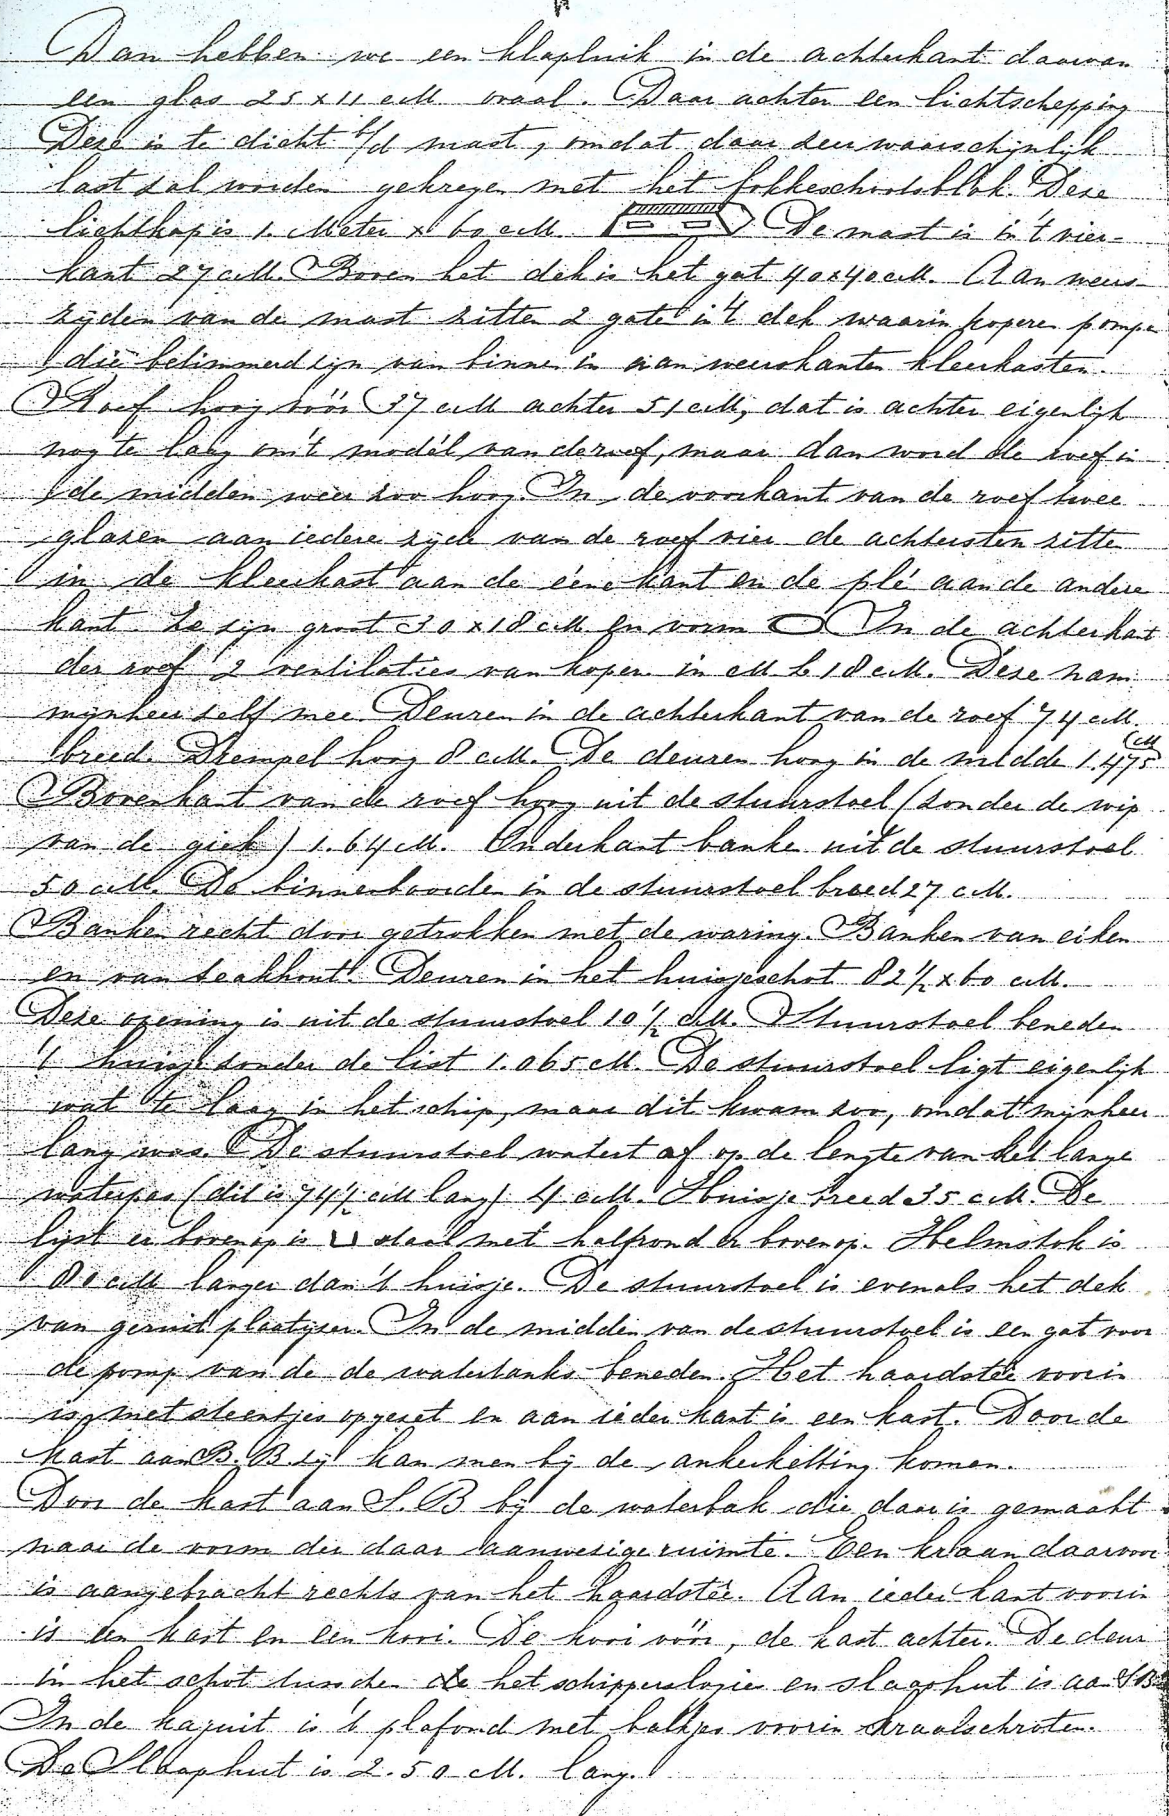 Dan hebben we een klapluik in de achterkant daarvan
een glas 25 x 11 cM ovaal. Daar achter een lichtschepping
Deze is te dicht b/d mast, omdat daar zeer waarschijnlijk
last zal worden gekregen met het fokkeschootsblok. Deze
lichtkap is 1. Meter x 60 cM De mast is in 't vier-
kant 27 cM. Boven het dek is het gat 40x40 cM. Aan weers-
zijden van de mast zitten 2 gate in 't dek waarin koperen pompe
die betimmerd zijn van binne in aan weerskanten kleerkasten.
Roef hoog vóór 37 cM achter 51 cM, dat is achter eigenlijk
nog te laag om 't modél van de roef, maar dan word de roef in
de midden weer zoo hoog. In de voorkant van de roef twee
glazen aan iedere zijde van de roef vier de achtersten zitte
in de kleerkast aan de ééne kant en de plé aan de andere
kant. Ze zijn groot 30 x 18 cM en vorm In de achterkant
der roef 2 ventilaties van koper in cM b 18 cM. Deze nam
mynheer self mee. Deuren in de achterkant van de roef 74 cM.
breed. Drempel hoog 8 cM. De deuren hoog in de midde 1.475 cM
Bovenkant van de roef hoog uit de stuurstoel (zonder de wip
van de giek) 1.64 cM. Onderkant banke uit de stuurstoel
50 cM. De binnenboorden in de stuurstoel breed 27 cM.
Banke recht door getrokken met de waring. Banken van eiken
en van teakhout. Deuren in het huisjeschot 82 1/2 x 60 cM.
Deze opening is uit de stuurstoel 10 1/2 cM. Stuurstoel beneden
't huisje zonder de list 1.065 cM. De stuurstoel ligt eigenlijk
wat te laag in het schip, maar dit kwam zoo, omdat mynheer
lang was. De stuurstoel watert af op de lengte van het lange
waterpas (dit is 74 1/2 cM lang) 4 cM. Huisje breed 35 cM. De
lijst er bovenop is staal met halfrond er bovenop. Helmstok is
80 cM langer dan 't huisje. De stuurstoel is evenals het dek
van geruit plaatyzer. In de midden van de stuurstoel is een gat voor
de pomp van de de watertanks beneden. Het haardsteê voorin
is met steentjes opgezet en aan ieder kant is een kast. Door de
kast aan B.B. zij kan men bij de ankerketting komen.
Door de kast aan S.B bij de waterbak die daar is gemaakt
naar de vorm der daar aanwezige ruimte. Een kraan daarvoor
is aangebracht rechts van het haardsteê. Aan ieder kant voorin
is een kast en een kooi. De kooi vóór, de kast achter. De deur
in het schot tusschen de het schipperslogies en slaaphut is aan SB
In de kajuit is 't plafond met balkjes voorin kraalschroten.
De Slaaphut is 2.50 cM. lang.